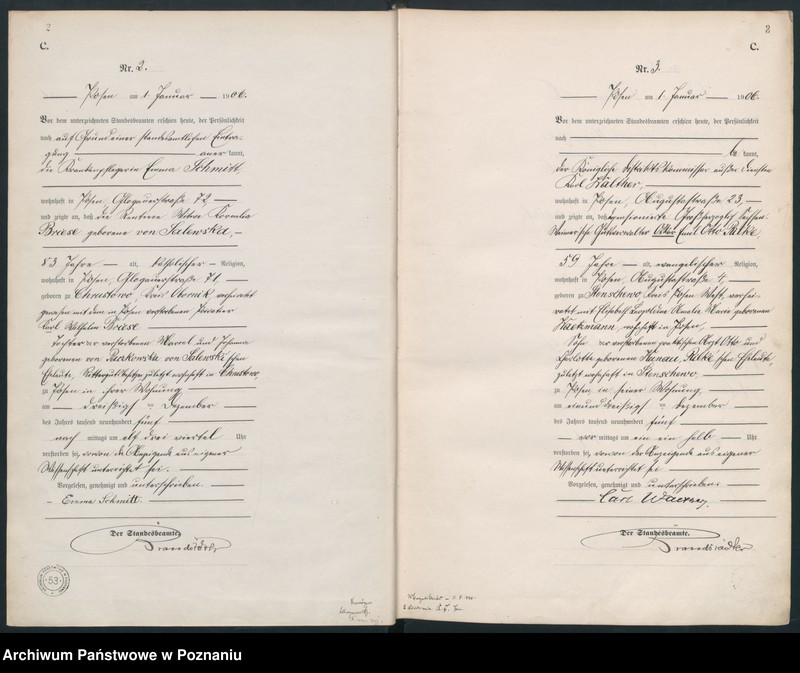 2
C.
Nr. 2.
Posen am 1. Januar 1906.
Vor dem unterzeichneten Standesbeamten erschien heute, der Persönlichkeit
nach auf Grund einer standesamtlichen Eintra-
gung anerkannt,
die Krankenpflegerin Emma Schmitt,
wohnhaft in Posen, Glogauerstraße 72,
und zeigte an, daß die Rentiere Witwe Kornelia
Briese geborene von Zalewska,
83 Jahre alt, katholischer Religion,
wohnhaft in Posen, Glogauerstraße 71,
geboren zu Chrustowo, Kreis Obornik, verheiratet
gewesen mit dem in Posen verstorbenen
Karl Wilhelm Briese
Tochter der verstorbenen Marcel und
geborenen von von Zalewski'schen
Eheleute, zuletzt wohnhaft in Chrustowo,
zu Posen in ihrer Wohnung,
am dreißigsten Dezember
des Jahres tausend neunhundert fünf
nach mittags um elf drei viertel Uhr
verstorben sei, wovon die Anzeigende aus eigener
Wissenschaft unterrichtet sei.
Vorgelesen, genehmigt und unterschrieben.
Emma Schmitt.
Der Standesbeamte.
53
3
C.
Nr. 3.
Posen am 1. Januar 1906.
Vor dem unterzeichneten Standesbeamten erschien heute, der Persönlichkeit
nach
be kannt,
der Königliche Distriktskommissar außer Diensten
Karl
wohnhaft in Posen, Augustastraße 23,
und zeigte an, daß der pensionierte Großherzoglich Sachsen
Weimarische Güterverwalter Oskar Emil Otto Rilke,
59 Jahre alt, evangelischer Religion,
wohnhaft in Posen, Augustastraße 4,
geboren zu Stenschewo, Kreis Posen West, verhei-
ratet mit Elisabeth Leopoldine Amalie Marie geborenen
wohnhaft in Posen,
Sohn der verstorbenen praktischen Arzt Otto und
Charlotte geborenen Rilke'schen Eheleute,
zuletzt wohnhaft in Stenschewo,
zu Posen in seiner Wohnung,
am einunddreißigsten Dezember
des Jahres tausend neunhundert fünf
vor mittags um ein ein halb Uhr
verstorben sei, wovon der Anzeigende aus eigener
Wissenschaft unterrichtet sei
Vorgelesen, genehmigt und unterschrieben
Der Standesbeamte.
Archiwum Państwowe w Poznaniu